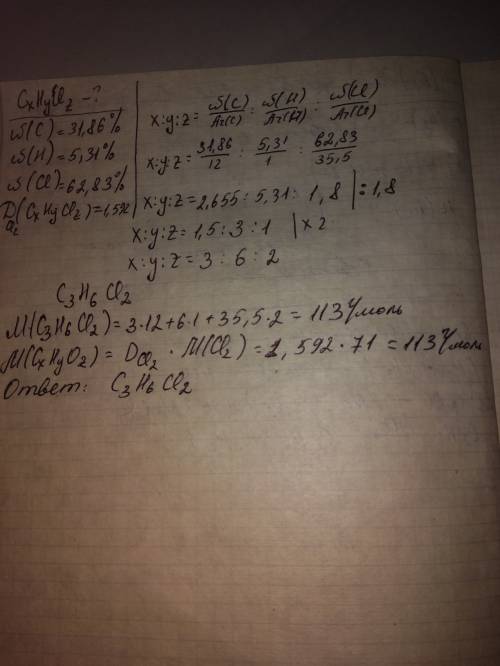 CxHyClz - ?
ω(C) = 31,86%
ω(H) = 5,31%
ω(Cl) = 62,83%
D Cl₂ (CxHyClz) = 1,592
x:y:z = ω(C)/Ar(C) : ω(H)/Ar(H) : ω(Cl)/Ar(Cl)
x:y:z = 31,86/12 : 5,31/1 : 62,83/35,5
x:y:z = 2,655 : 5,31 : 1,8 | : 1,8
x:y:z = 1,5 : 3 : 1 | x 2
x:y:z = 3 : 6 : 2
C₃H₆Cl₂
M(C₃H₆Cl₂) = 3·12+6·1+35,5·2 = 113 г/моль
M(CxHyO₂) = D Cl₂ · M(Cl₂) = 1,592·71 = 113 г/моль
Ответ: C₃H₆Cl₂